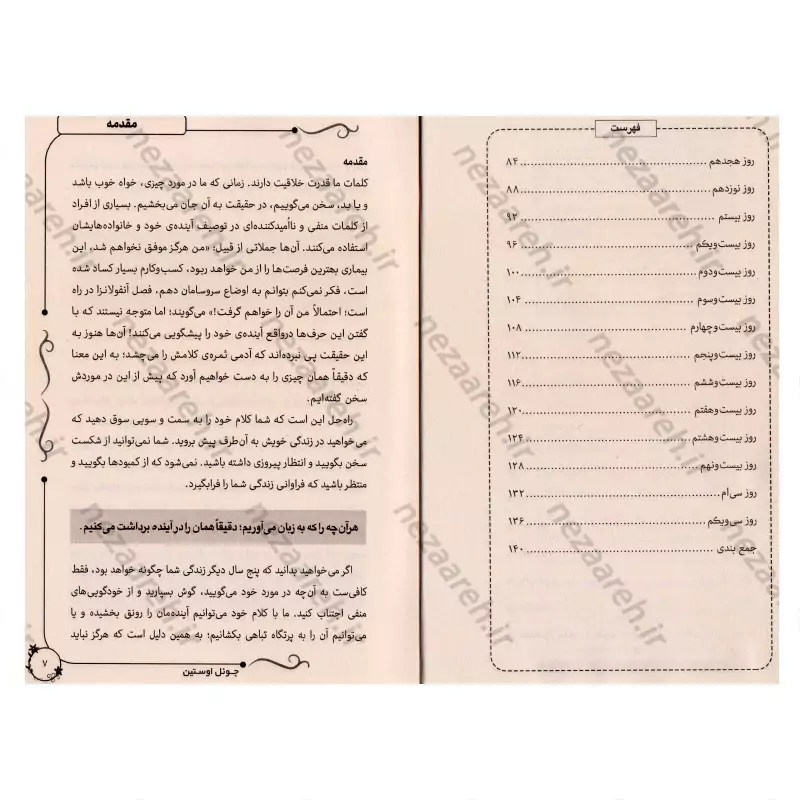 فهرست
روز هجدهم ۸۴
روز نوزدهم ۸۸
روز بیستم ۹۲
روز بیست‌ویکم ۹۶
روز بیست‌ودوم ۱۰۰
روز بیست‌وسوم ۱۰۴
روز بیست‌وچهارم ۱۰۸
روز بیست‌وپنجم ۱۱۲
روز بیست‌وششم ۱۱۶
روز بیست‌وهفتم ۱۲۰
روز بیست‌وهشتم ۱۲۴
روز بیست‌ونهم ۱۲۸
روز سی‌ام ۱۳۲
روز سی‌ویکم ۱۳۶
جمع بندی ۱۴۰
مقدمه
مقدمه
کلمات ما قدرت خلاقیت دارند. زمانی که ما در مورد چیزی، خواه خوب باشد
و یا بد، سخن می‌گوییم، در حقیقت به آن جان می‌بخشیم. بسیاری از افراد
از کلمات منفی و ناامیدکننده‌ای در توصیف آینده‌ی خود و خانواده‌هایشان
استفاده می‌کنند. آن‌ها جملاتی از قبیل: «من هرگز موفق نخواهم شد، این
بیماری بهترین فرصت‌ها را از من خواهد ربود، کسب‌وکارم بسیار کساد شده
است، فکر نمی‌کنم بتوانم به اوضاع سروسامان دهم، فصل آنفولانزا در راه
است؛ احتمالاً من آن را خواهم گرفت!» می‌گویند؛ اما متوجه نیستند که با
گفتن این حرف‌ها درواقع آینده‌ی خود را پیشگویی می‌کنند! آن‌ها هنوز به
این حقیقت پی نبرده‌اند که آدمی ثمره‌ی کلامش را می‌چشد؛ به این معنا
که دقیقاً همان چیزی را به دست خواهیم آورد که پیش از این در موردش
سخن گفته‌ایم.
راه‌حل این است که شما کلام خود را به سمت و سویی سوق دهید که
می‌خواهید در زندگی خویش به آن‌طرف پیش بروید. شما نمی‌توانید از شکست
سخن بگویید و انتظار پیروزی داشته باشید. نمی‌شود که از کمبودها بگویید و
منتظر باشید که فراوانی زندگی شما را فرابگیرد.
هرآن‌چه را که به زبان می‌آوریم؛ دقیقاً همان را در آینده برداشت می‌کنیم.
اگر می‌خواهید بدانید که پنج سال دیگر زندگی شما چگونه خواهد بود، فقط
کافی‌ست به آن‌چه در مورد خود می‌گویید، گوش بسپارید و از خودگویی‌های
منفی اجتناب کنید. ما با کلام خود می‌توانیم آینده‌مان را رونق بخشیده و یا
می‌توانیم آن را به پرتگاه تباهی بکشانیم؛ به همین دلیل است که هرگز نباید
جوئل اوستین
۷
nezaareh.ir
nezaareh.ir
nezaareh.ir
nezaareh.ir
nezaareh.ir
nezaareh.ir
nezaareh.ir
nezaareh.ir
nezaareh.ir